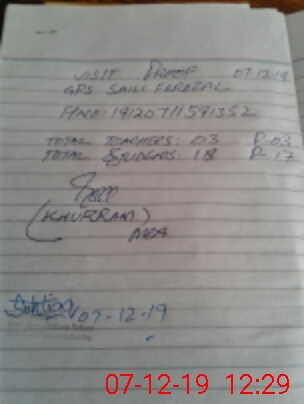 VISIT PROOF 07.12.19
GPS SAILI FEROZAL
F/NO: 19120711591352
TOTAL TEACHERS: 03 P-03
TOTAL STUDENTS: 18 P-17
(KHURRAM)
MEA
07-12-19
07-12-19 12:29